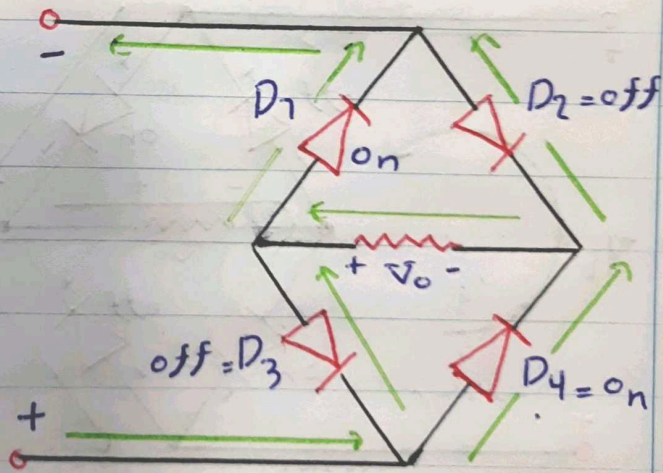 -
D1
on
D2=off
+ Vo -
off=D3
D4=on
+